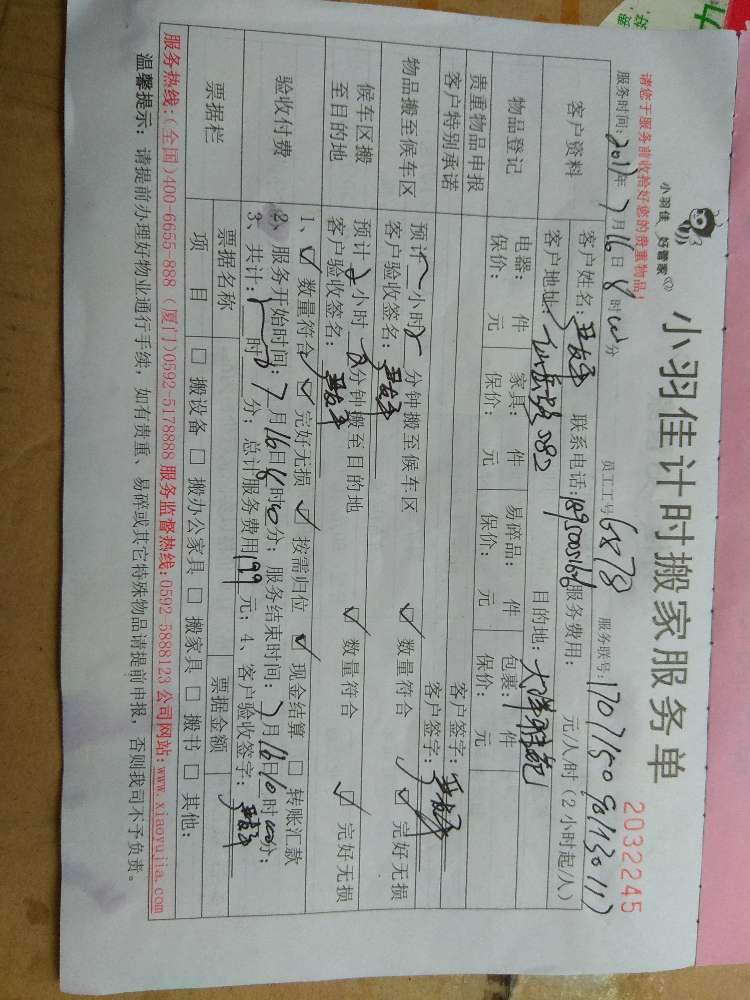 请您于服务前收拾好您的贵重物品!
小羽佳 好管家
小羽佳计时搬家服务单
2032245
服务时间:2017年7月16日8时00分 员工工号 6X78 服务联号:
客户资料 客户姓名: 联系电话: 服务费用: 元/人/时(2小时起/人)
客户地址: 仙岳路 目的地:
物品登记 电器: 件 家具: 件 易碎品: 件 包裹: 件
保价: 元 保价: 元 保价: 元 保价: 元
贵重物品申报 客户签字:
客户特别承诺 客户签字:
物品搬至候车区 预计 小时 分钟搬至候车区
客户验收签名: ☑ 数量符合 ☑ 完好无损
候车区搬至目的地 预计 小时 分钟搬至目的地
客户验收签名: ☑ 数量符合 ☑ 完好无损
验收付费 1、☑ 数量符合 ☑ 完好无损 ☑ 按需归位 ☑ 现金结算 □ 转账汇款
2、服务开始时间:7月16日8时00分;服务结束时间:7月16日10时00分;
3、共计: 时 分;总计服务费用199元;4、客户验收签字:
票据栏 票据名称 票据金额
项目 □ 搬设备 □ 搬办公家具 □ 搬家具 □ 搬书 □ 其他:
服务热线:(全国)400-6655-888 (厦门)0592-5178888 服务监督热线:0592-5888123 公司网站:www.xiaoyujia.com
温馨提示:请提前办理好物业通行手续,如有贵重、易碎或其它特殊物品请提前申报,否则我司不予负责。